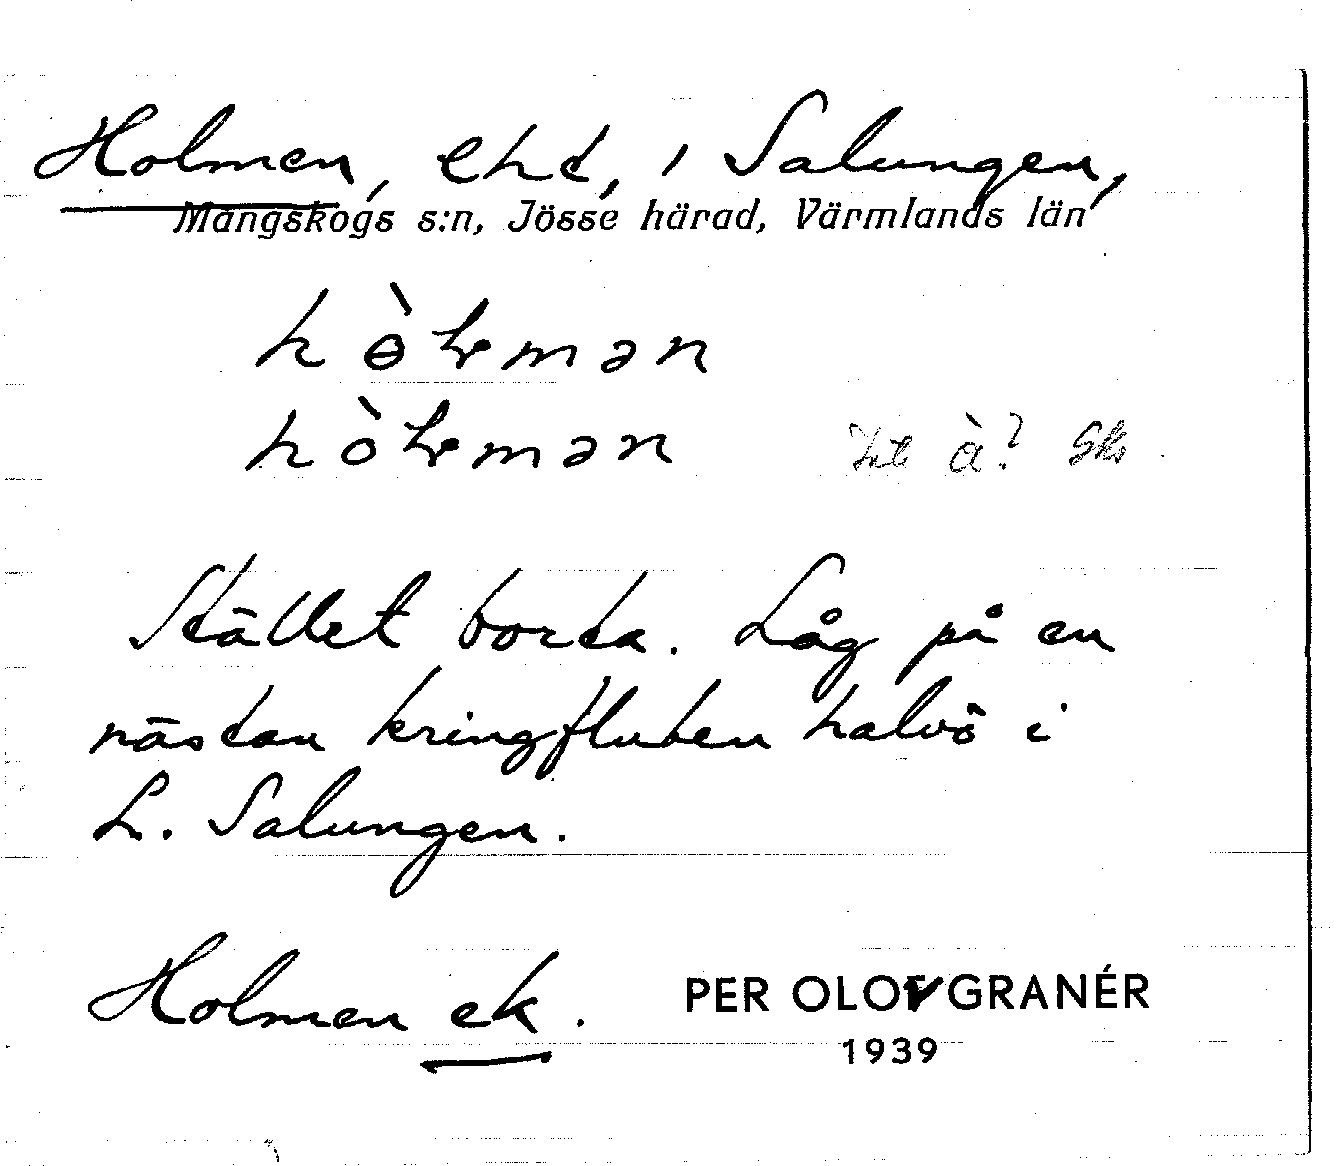 Holmen, ehd, i Salungen,
Mangskogs s:n, Jösse härad, Värmlands län
hò̵ɫman
hòɫmən
Inte à? Gks
Stället borta. Låg på en
nästan kringfluten halvö i
L. Salungen.
Holmen ek.
PER OLOV GRANÉR
1939